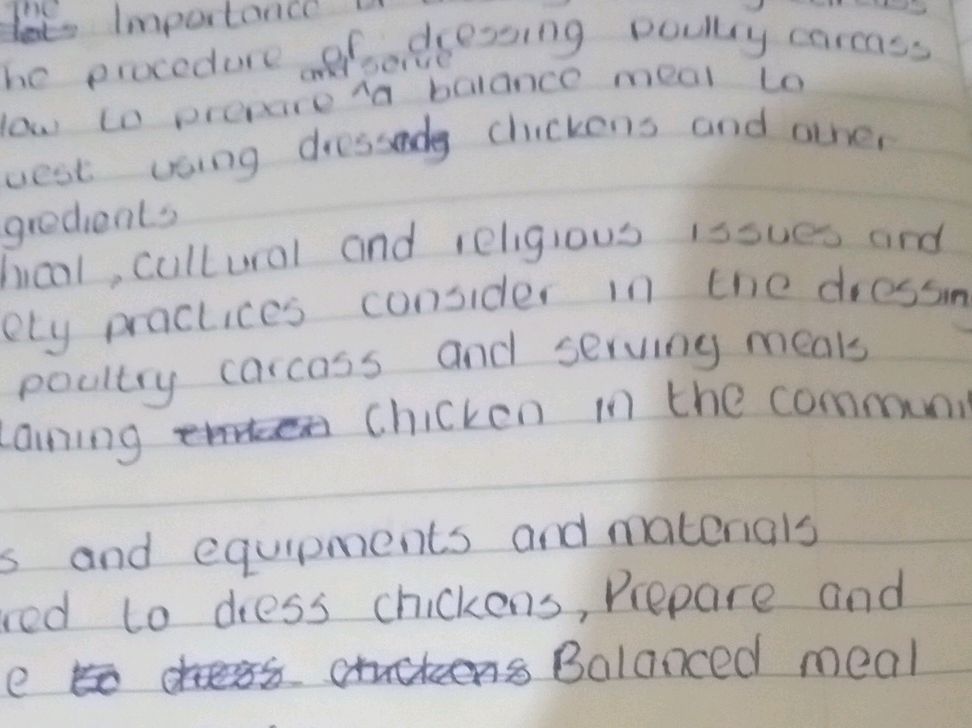 the Importance
he procedure of dressing poultry carcass
low to prepare and serve a balance meal to
uest using dressed chickens and other
gredients
hical, cultural and religious issues and
ety practices consider in the dressin
poultry carcass and serving meals
taining chicken in the communi
s and equipments and materials
red to dress chickens, Prepare and
e to dress chickens Balanced meal